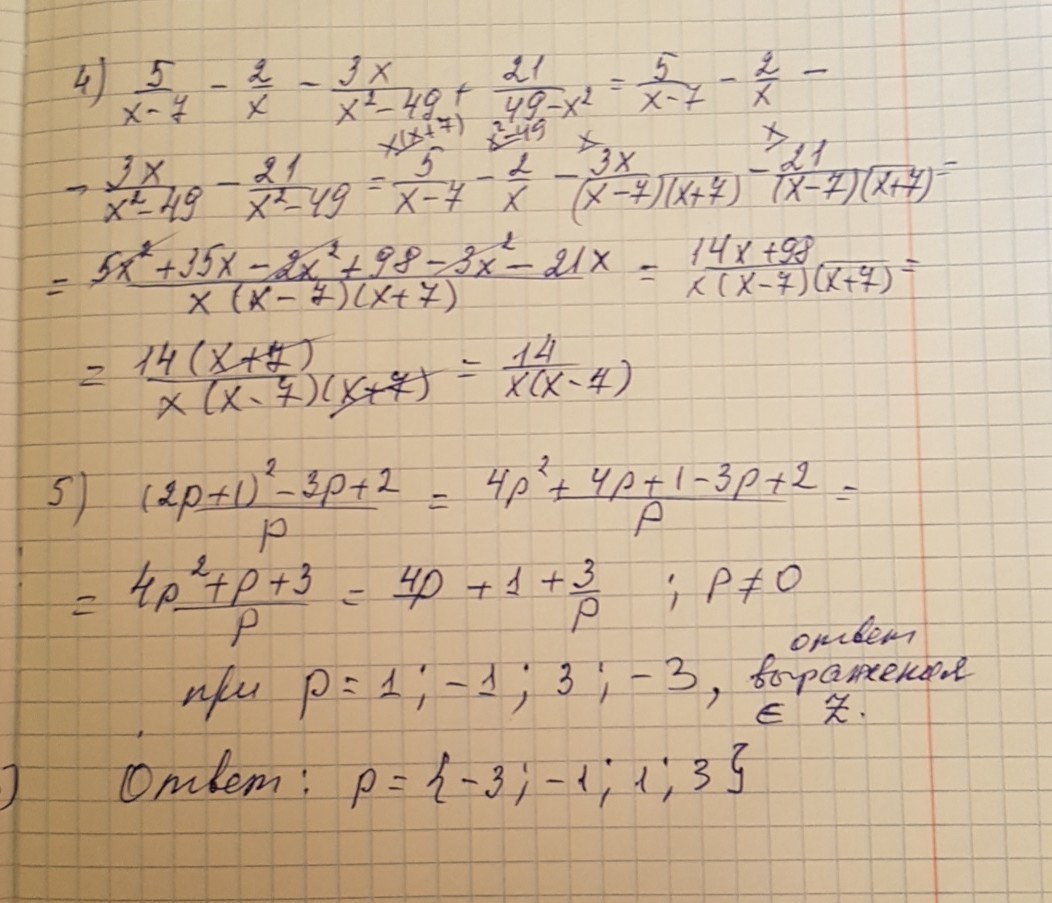 4) 5/(x-7) - 2/x - 3x/(x²-49) + 21/(49-x²) = 5/(x-7) - 2/x -
x(x+7) x²-49 x x
- 3x/(x²-49) - 21/(x²-49) = 5/(x-7) - 2/x - 3x/((x-7)(x+7)) - 21/((x-7)(x+7)) =
= (5x²+35x-2x²+98-3x²-21x)/(x(x-7)(x+7)) = (14x+98)/(x(x-7)(x+7)) =
= 14(x+7)/(x(x-7)(x+7)) = 14/(x(x-7))
5) ((2p+1)²-3p+2)/p = (4p²+4p+1-3p+2)/p =
= (4p²+p+3)/p = 4p + 1 + 3/p ; p≠0
при p = 1; -1; 3; -3, ответ
выражения
∈ Z.
) Ответ: p = {-3; -1; 1; 3}